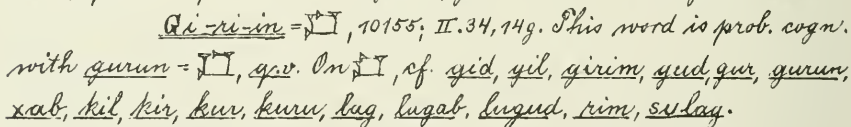 Gi-ri-in = 𒆸, 10155; II. 34, 14g. This word is prob. cogn.
with gurun = 𒆸, q.v. On 𒆸, cf. gid, gil, girim, gud, gur, gurun,
xab, kil, kir, kur, kuru, lag, lugab, lugud, rim, sulag.